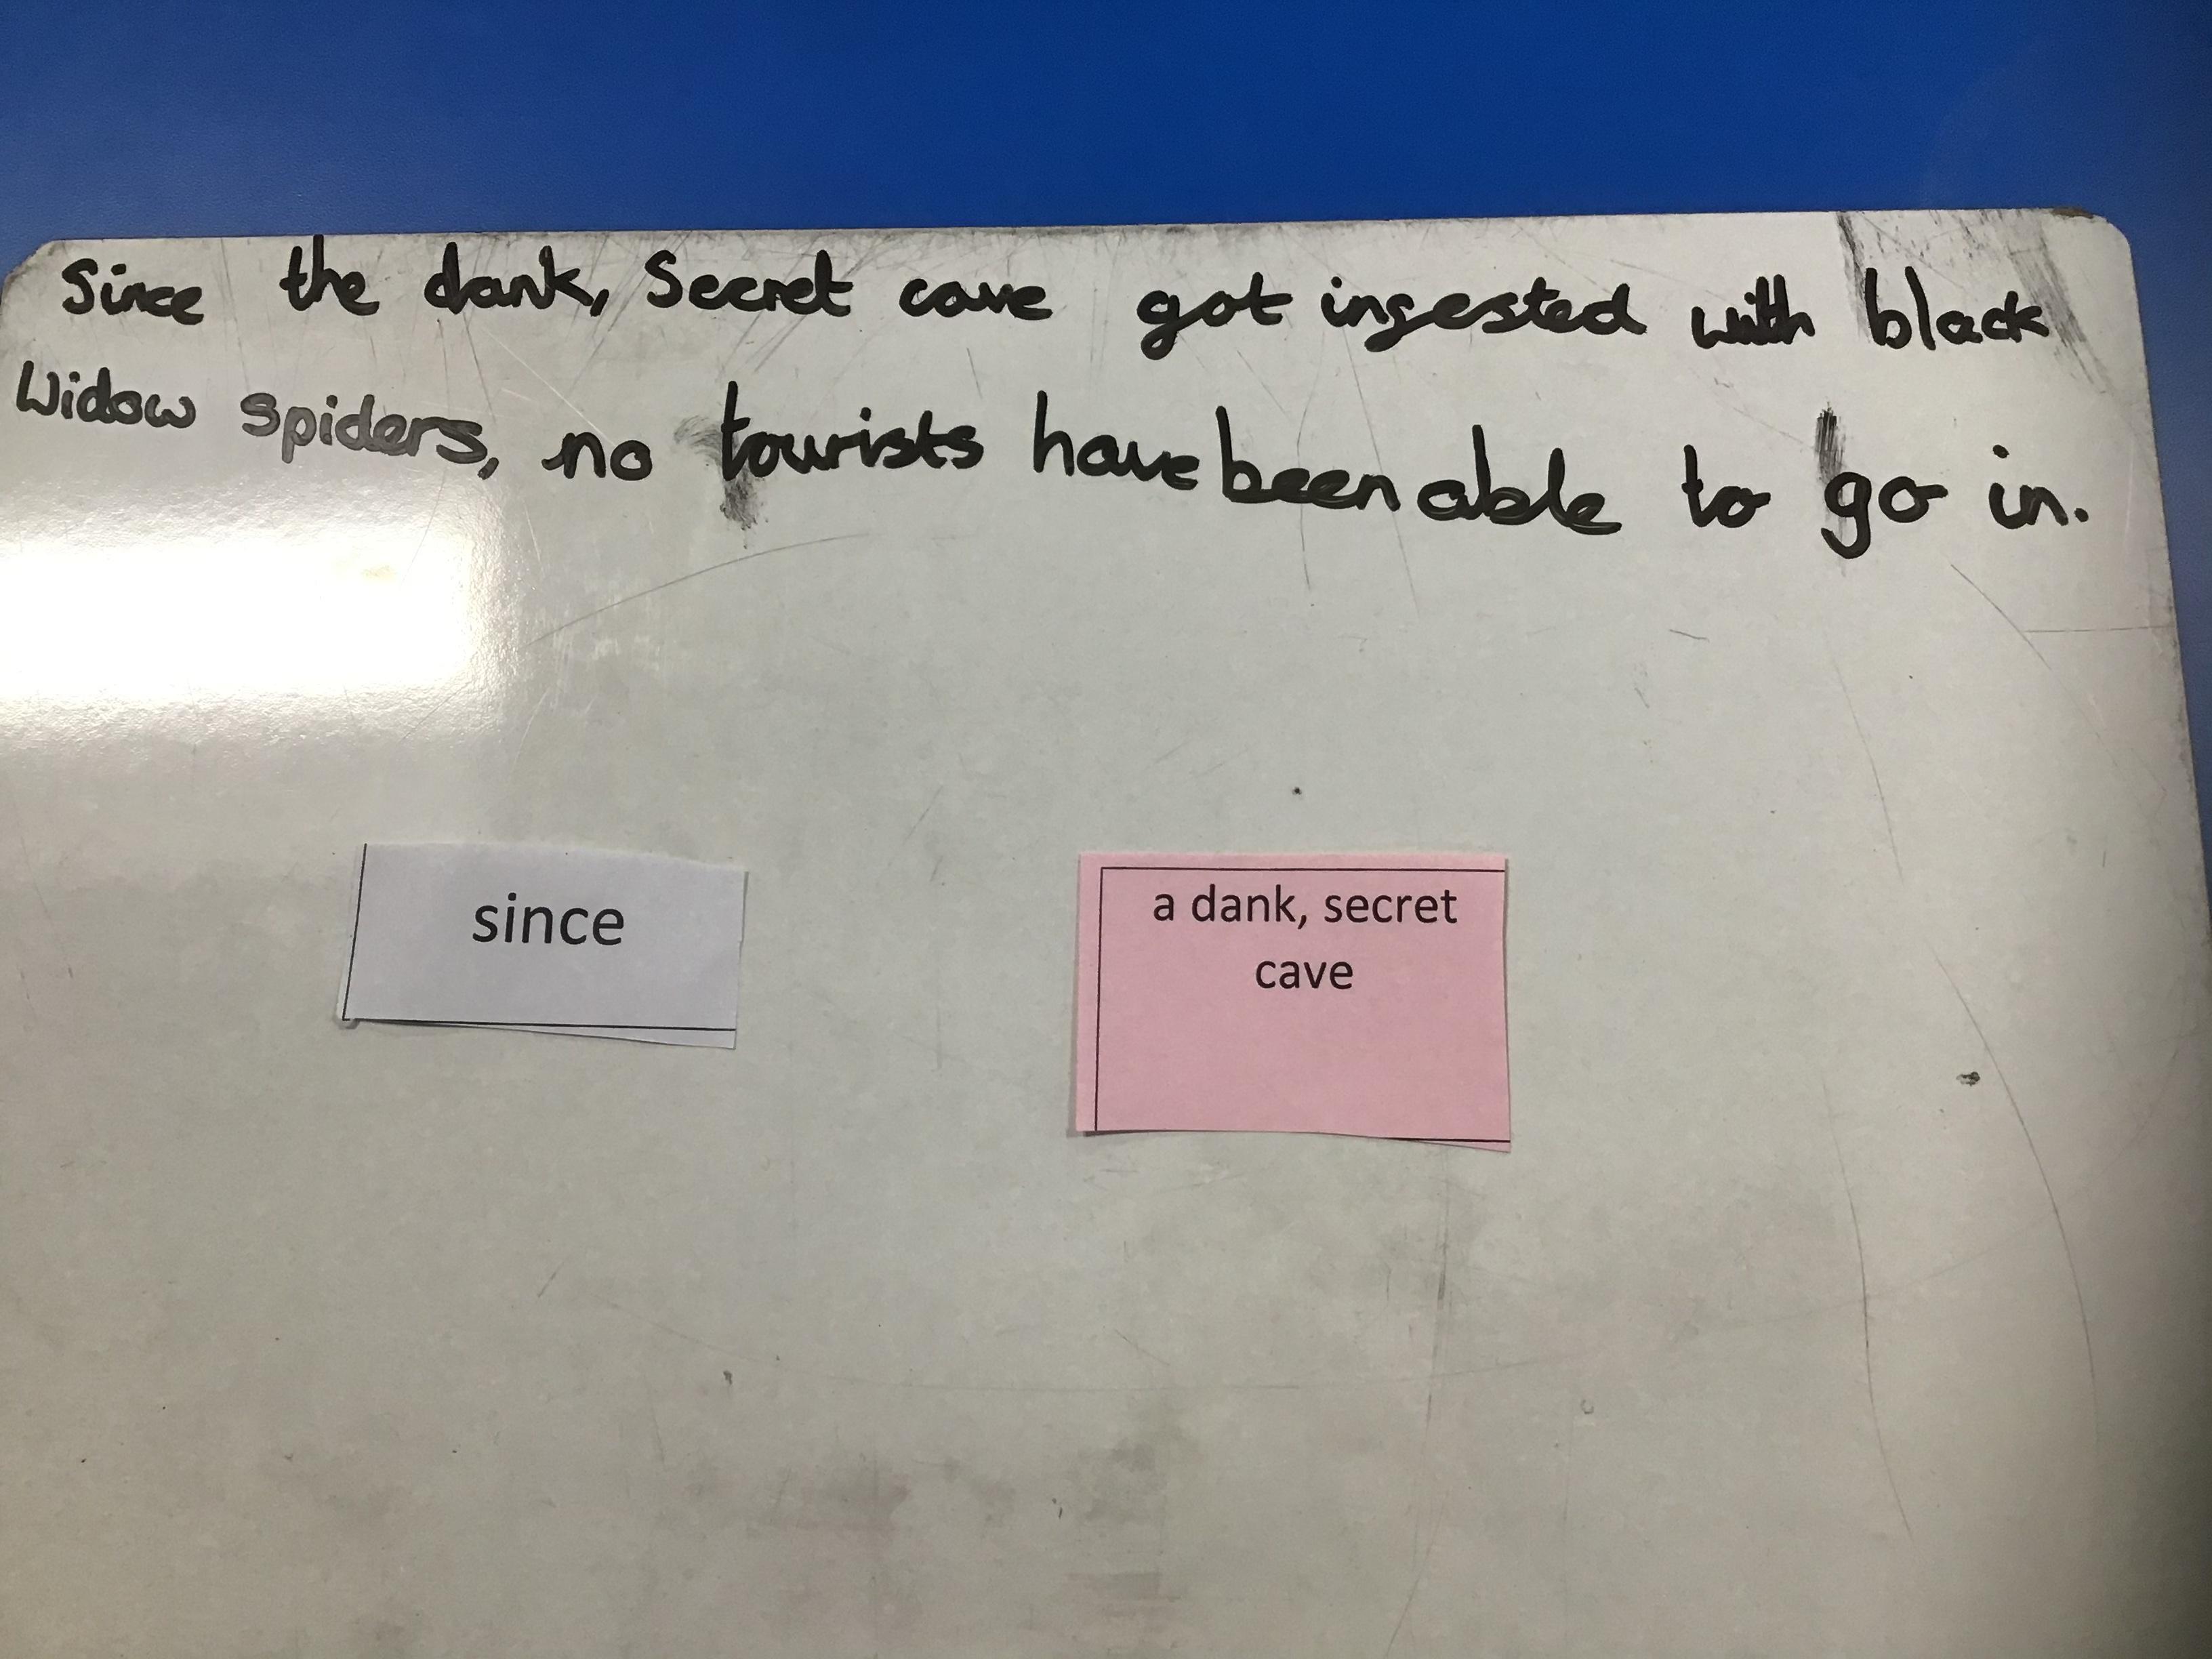 Since the dank, Secret cave got infested with black
Widow spiders, no tourists have been able to go in.
since
a dank, secret
cave